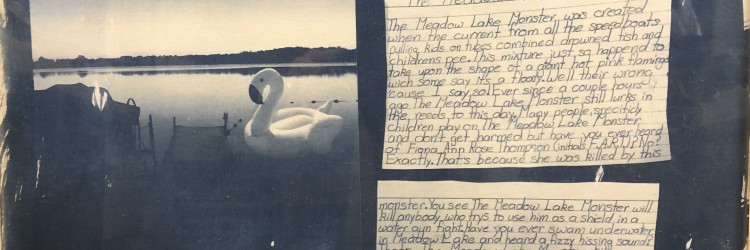 The Meadow
The Meadow Lake Monster was created
when the current from all the speedboats
pulling kids on tubes combined drowned fish and
childrens pee. This mixture just so happend to
take upon the shape of a giant hot pink flamingo
wich some say it's a floaty. Well their wrong
'cause I say so! Ever since a couple hours
ago The Meadow Lake Monster still lurks in
the reeds to this day. Many people, specificly
children play on The Meadow Lake Monster
and don't get harmed but have you ever heard
of Fiona Ann Rose Thompson (initials F.A.R.T.)? No!
Exactly. That's because she was killed by this
monster. You see The Meadow Lake Monster will
kill anybody who trys to use him as a shield in a
water gun fight. Have you ever swam underwater
in Meadow Lake and heard a fizzy hissing sound?